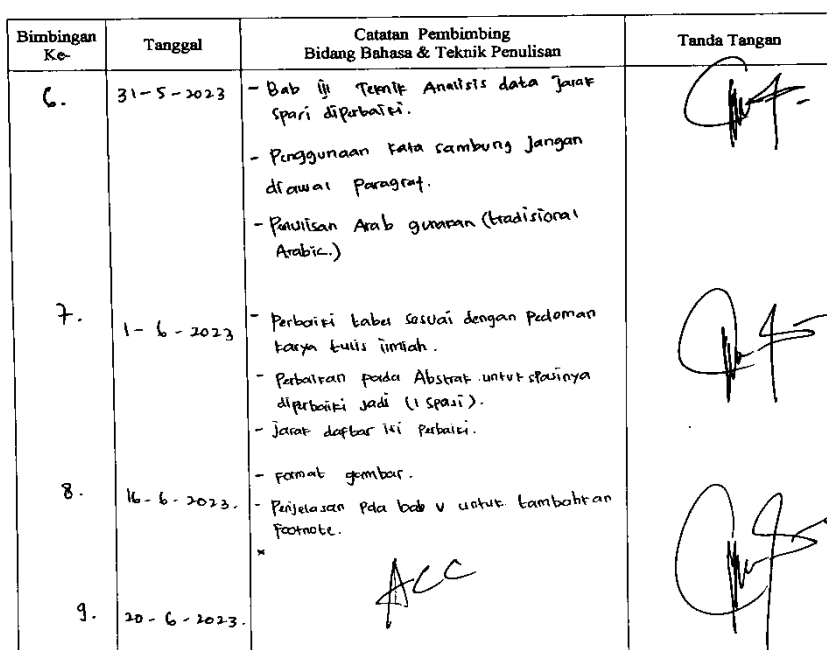 Bimbingan Ke-
Tanggal
Catatan Pembimbing
Bidang Bahasa & Teknik Penulisan
Tanda Tangan
6. 31-5-2023 - Bab iii Teknik Analisis data Jarak
Spasi diperbaiki.
- Penggunaan kata sambung Jangan
diawal Paragraf.
- Penulisan Arab gunakan (tradisional
Arabic.)
7. 1-6-2023 - Perbaiki tabel sesuai dengan Pedoman
karya tulis ilmiah.
- Perbaikan pada Abstrak untuk spasinya
diperbaiki Jadi (1 spasi).
- Jarak daftar isi Perbaiki.
- Format gambar.
8. 16-6-2023. - Penjelasan Pda bab v untuk tambahkan
Footnote.
ACC
9. 20-6-2023.